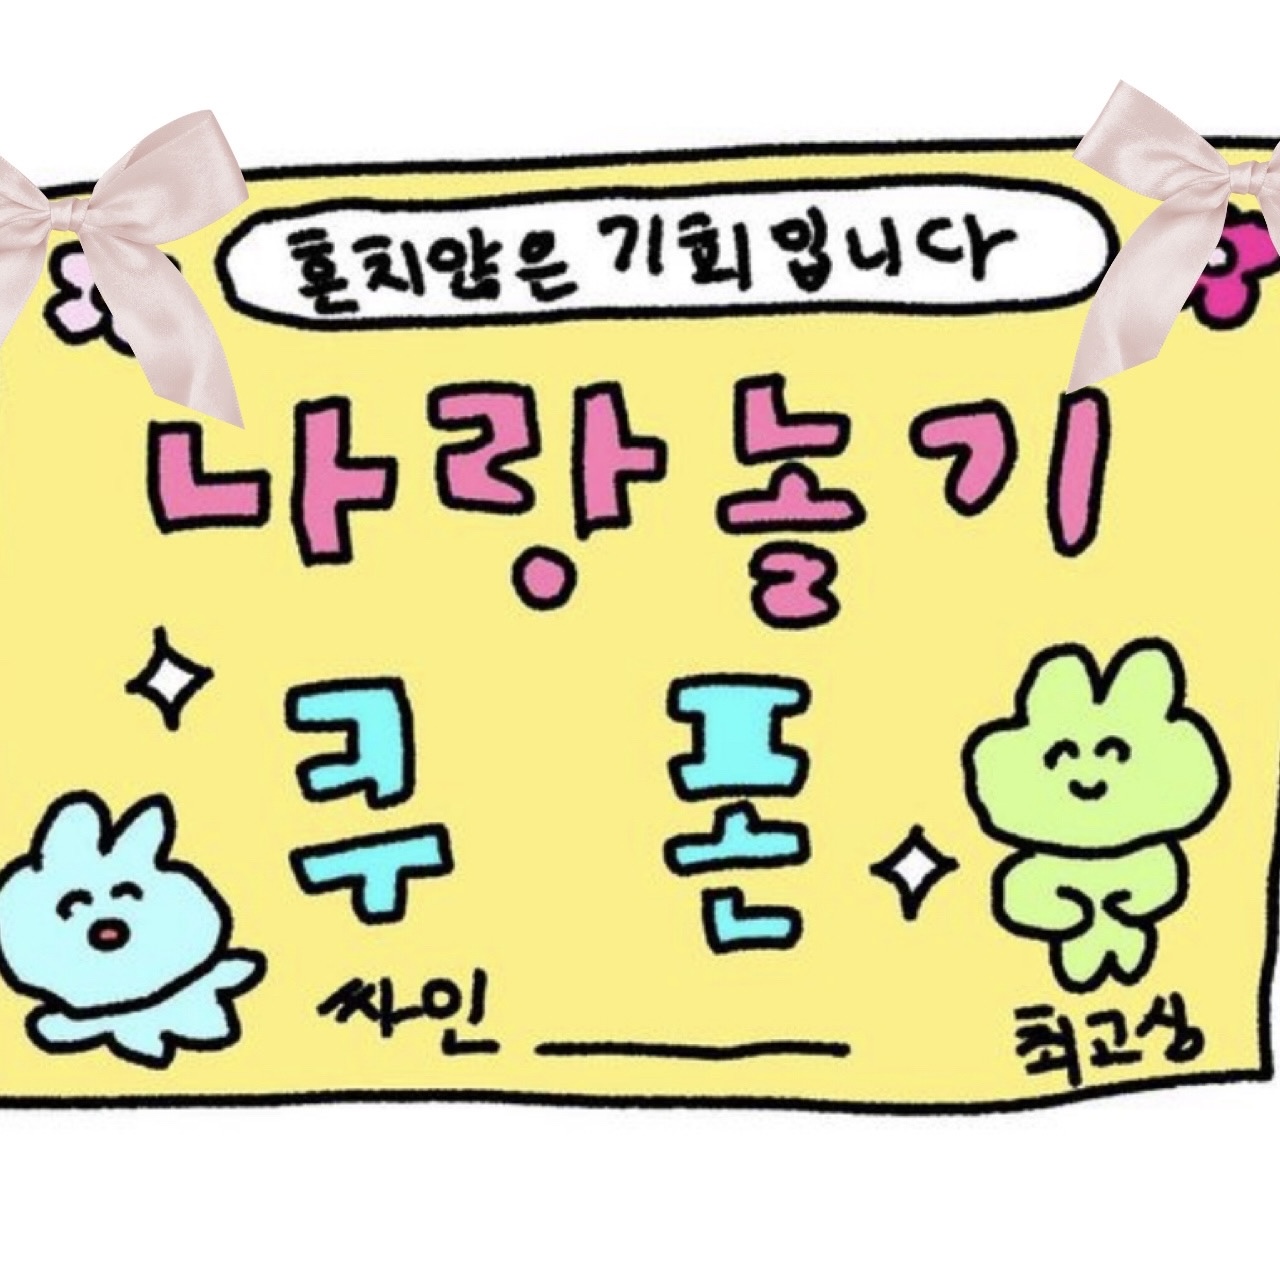 혼치않은 기회입니다
나랑놀기
쿠폰
싸인
최고심